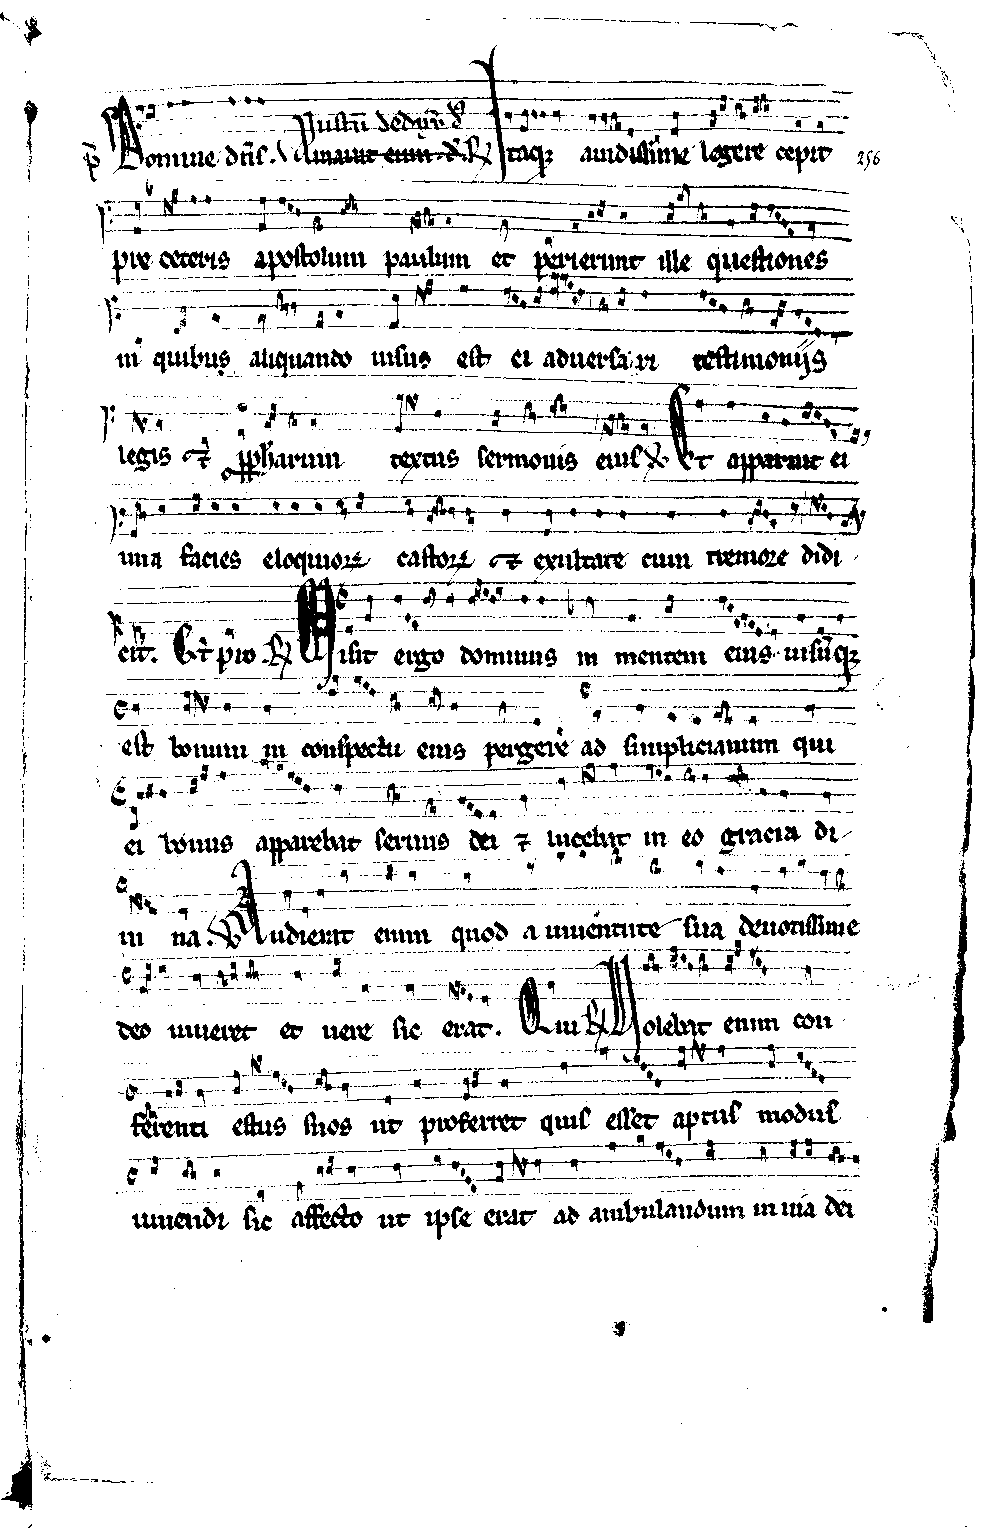 Iustū deduxit
p̄ Domine dn̄s. V Amauit eum. d. R Itaq3 auidissime legere cepit 256
pre ceteris apostolum paulum et perierunt ille questiones
in quibus aliquando uisus est ei aduersari testimoniis
legis et pph̄arum textus sermonis eius V Et apparuit ei
una facies eloquiorꝝ castorꝝ et exultare cum tremore didi
cit. Et perie R Misit ergo dominus in mentem eius uisūq3
est bonum in conspectu eius pergere ad simplicianum qui
ei bonus apparebat seruus dei ⁊ lucebat in eo gracia di
ui na. V Audierat enim quod a iuuentute sua deuotissime
deo uiueret et uere sic erat. Qui R Uolebat enim con
ferenti estus suos ut proferret quis esset aptus modus
uiuendi sic affecto ut ipse erat ad ambulandum in uia dei